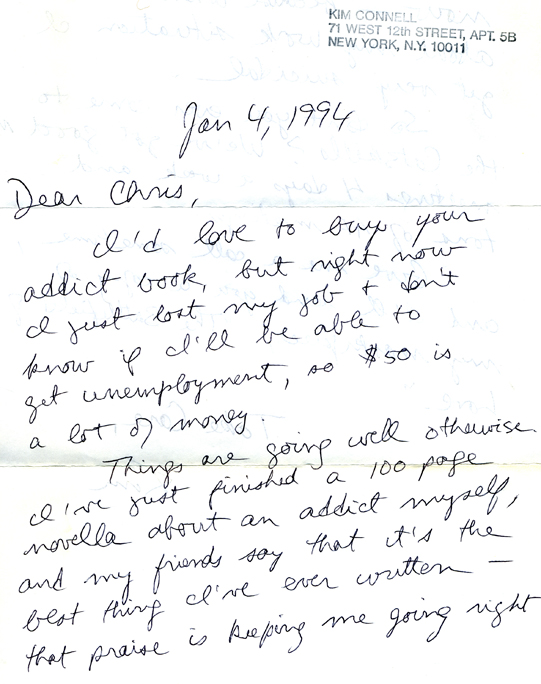 KIM CONNELL
71 WEST 12th STREET, APT. 5B
NEW YORK, N.Y. 10011
Jan 4, 1994
Dear Chris,
I'd love to buy your
addict book, but right now
I just lost my job + don't
know if I'll be able to
get unemployment, so $50 is
a lot of money.
Things are going well otherwise.
I've just finished a 100 page
novella about an addict myself,
and my friends say that it's the
best thing I've ever written —
that praise is keeping me going right